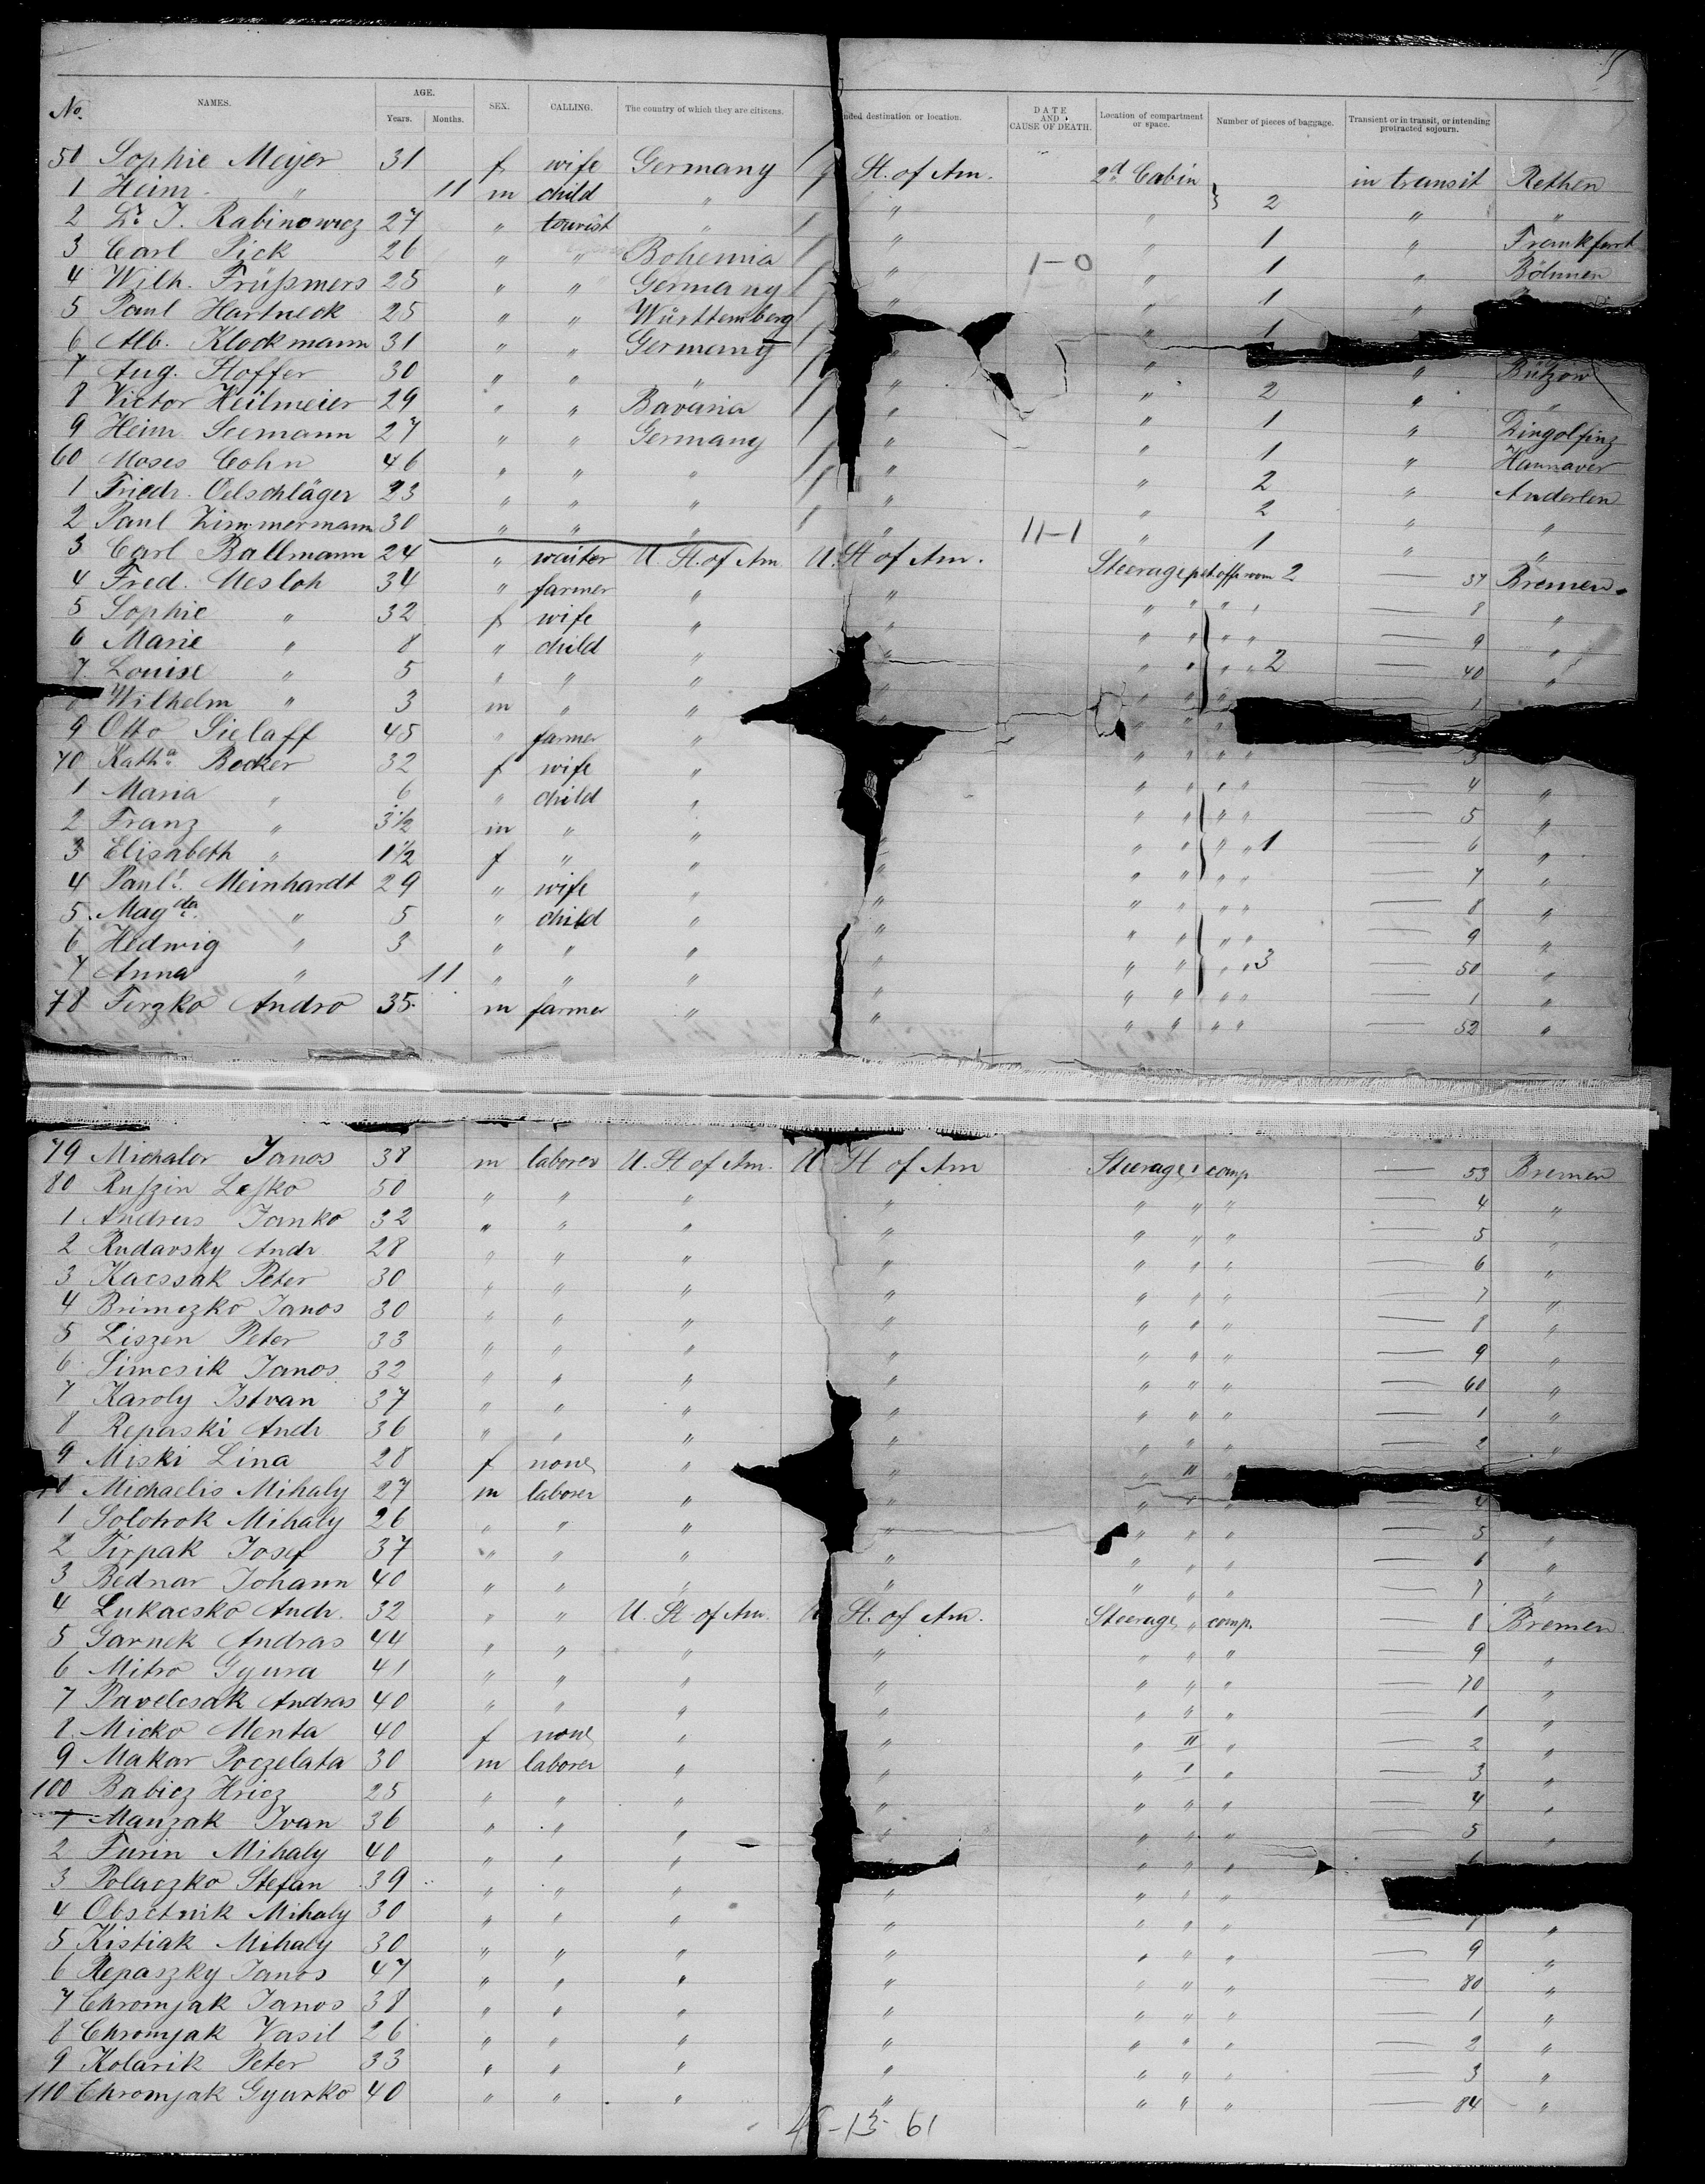 No. NAMES. AGE. Years. Months. SEX. CALLING. The country of which they are citizens. nded destination or location. DATE AND CAUSE OF DEATH. Location of compartment or space. Number of pieces of baggage. Transient or in transit, or intending protracted sojourn.
50 Sophie Meyer 31 f wife Germany St. of Am. 2d Cabin in transit Rethen
1 Heinr. " 11 m child " " } 2 " "
2 Dr. J. Rabinowicz 27 " tourist " " " 1 " Frankfurt
3 Carl Pick 26 " " Bohemia " 1-0 " 1 " Böhmen
4 Wilh. Früßmers 25 " " Germany " " 1 "
5 Paul Hartneck 25 " " Württemberg " 1
6 Alb. Klockmann 31 " " Germany " " " Bützow
7 Aug. Hoffer 30 " " " " " 2 " "
8 Victor Heilmeier 29 " " Bavaria " " 1 " Dingolfing
9 Heinr. Seemann 27 " " Germany " " 1 " Hannover
60 Moses Cohn 46 " " " " " 2 "
1 Friedr. Oelschläger 23 " " " " " 2 " "
2 Paul Zimmermann 30 " " " " 11-1 " 1 " "
3 Carl Ballmann 24 " waiter U. St. of Am. U. St of Am. Steerage 2 — 37 Bremen.
4 Fred. Mesloh 34 " farmer " " " " " " — 8 "
5 Sophie " 32 f wife " " " " " " — 9 "
6 Marie " 8 " child " " " " " " 2 — 40 "
7. Louise " 5 " " " " " " — 1
8 Wilhelm " 3 m " " " " "
9 Otto Sielaff 45 " farmer " " " " " — 3
70 Katha. Becker 32 f wife " " " " " — 4 "
1 Maria " 6 " child " " " " " — 5 "
2 Franz " 3½ m " " " " " " " 1 — 6 "
3 Elisabeth " 1½ f " " " " " " " — 7 "
4 Paul. Meinhardt 29 " wife " " " " " " — 8 "
5. Magda. " 5 " child " " " " " " — 9 "
6 Hedwig " 3 " " " " " " " " 3 — 50 "
7 Anna " 11 " " " " " " " " — 1 "
78 Ferzko Andro 35. m farmer " " " " " " — 52 "
79 Michalor Janos 38 m laborer U. St of Am. U St of Am Steerage I comp — 53 Bremen
80 Rufzin Lesko 50 " " " " " " " — 4 "
1 Andreis Janko 32 " " " " " " " — 5 "
2 Rudavsky Andr 28 " " " " " " " — 6 "
3 Kacssak Peter 30 " " " " " " " — 7 "
4 Brimczko Janos 30 " " " " " " " — 8 "
5 Liszen Peter 33 " " " " " " " — 9 "
6 Simcsik Janos 32 " " " " " " " — 60 "
7 Karoly Istvan 37 " " " " " " " — 1 "
8 Repaski Andr 36 " " " " " " " — 2 "
9 Miski Lina 28 f none " " " II "
Michaelis Mihaly 27 m laborer " " " " " 4
1 Solohok Mihaly 26 " " " " " " " — 5 "
2 Tirpak Josef 37 " " " " " " " — 6 "
3 Bednar Johann 40 " " " " " " " — 7 "
4 Lukacsko Andr. 32 " " U. St of Am. U St. of Am. Steerage " comp. — 8 Bremen
5 Garnek Andras 44 " " " " " " " — 9 "
6 Mitro Gyura 41 " " " " " " " — 70 "
7 Pavelcsak Andras 40 " " " " " " " — 1 "
8. Micko Menta 40 f none " " " II " — 2 "
9 Makar Poczelata 30 m laborer " " " I " — 3 "
100 Babicz Hricz 25 " " " " " " " — 4 "
1 Manzak Ivan 36 " " " " " " " — 5 "
2 Furin Mihaly 40 " " " " " " " — 6
3 Polaczko Stefan 39 " " " " " " "
4 Obsctnik Mihaly 30 " " " " " " " "
5 Kistiak Mihaly 30 " " " " " " " — 9 "
6 Repaszky Janos 47 " " " " " " " — 80 "
7 Chromjak Janos 38 " " " " " " " — 1 "
8 Chromjak Vasil 26 " " " " " " " — 2 "
9 Kolarik Peter 33 " " " " " " " — 3 "
110 Chromjak Gyurko 40 " " " " " " " — 84 "
-13-61